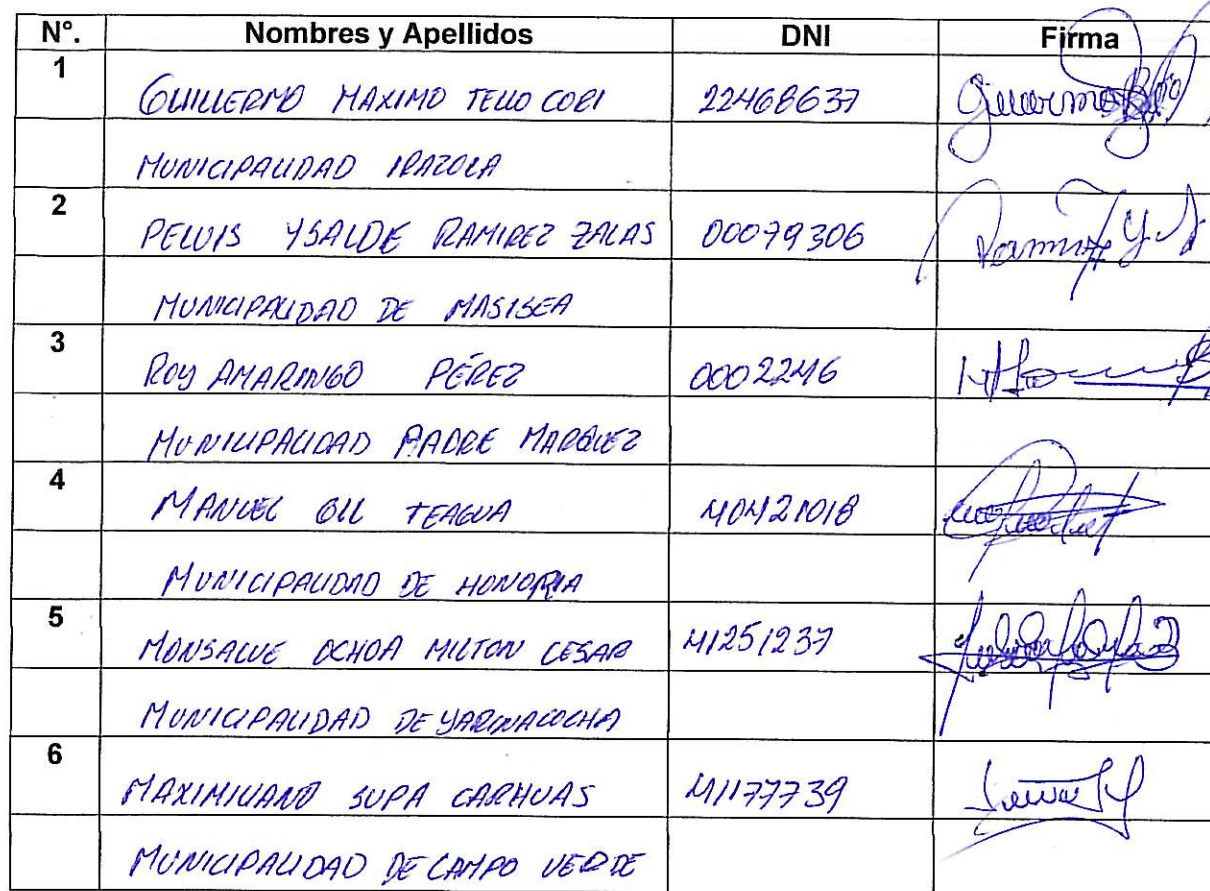 N°. Nombres y Apellidos DNI Firma
1 GUILLERMO MAXIMO TELLO CORI 22468637
MUNICIPALIDAD IRAZOLA
2 PELVIS YSALDE RAMIREZ ZALAS 00079306
MUNICIPALIDAD DE MASISEA
3 ROY AMARINGO PÉREZ 0002246
MUNICIPALIDAD PADRE MARQUEZ
4 MANUEL GIL TEAGUA 40421018
MUNICIPALIDAD DE HONORIA
5 MONSALVE OCHOA MILTON CESAR 41251237
MUNICIPALIDAD DE YARINACOCHA
6 MAXIMILIANO SUPA CARHUAS 41177739
MUNICIPALIDAD DE CAMPO VERDE